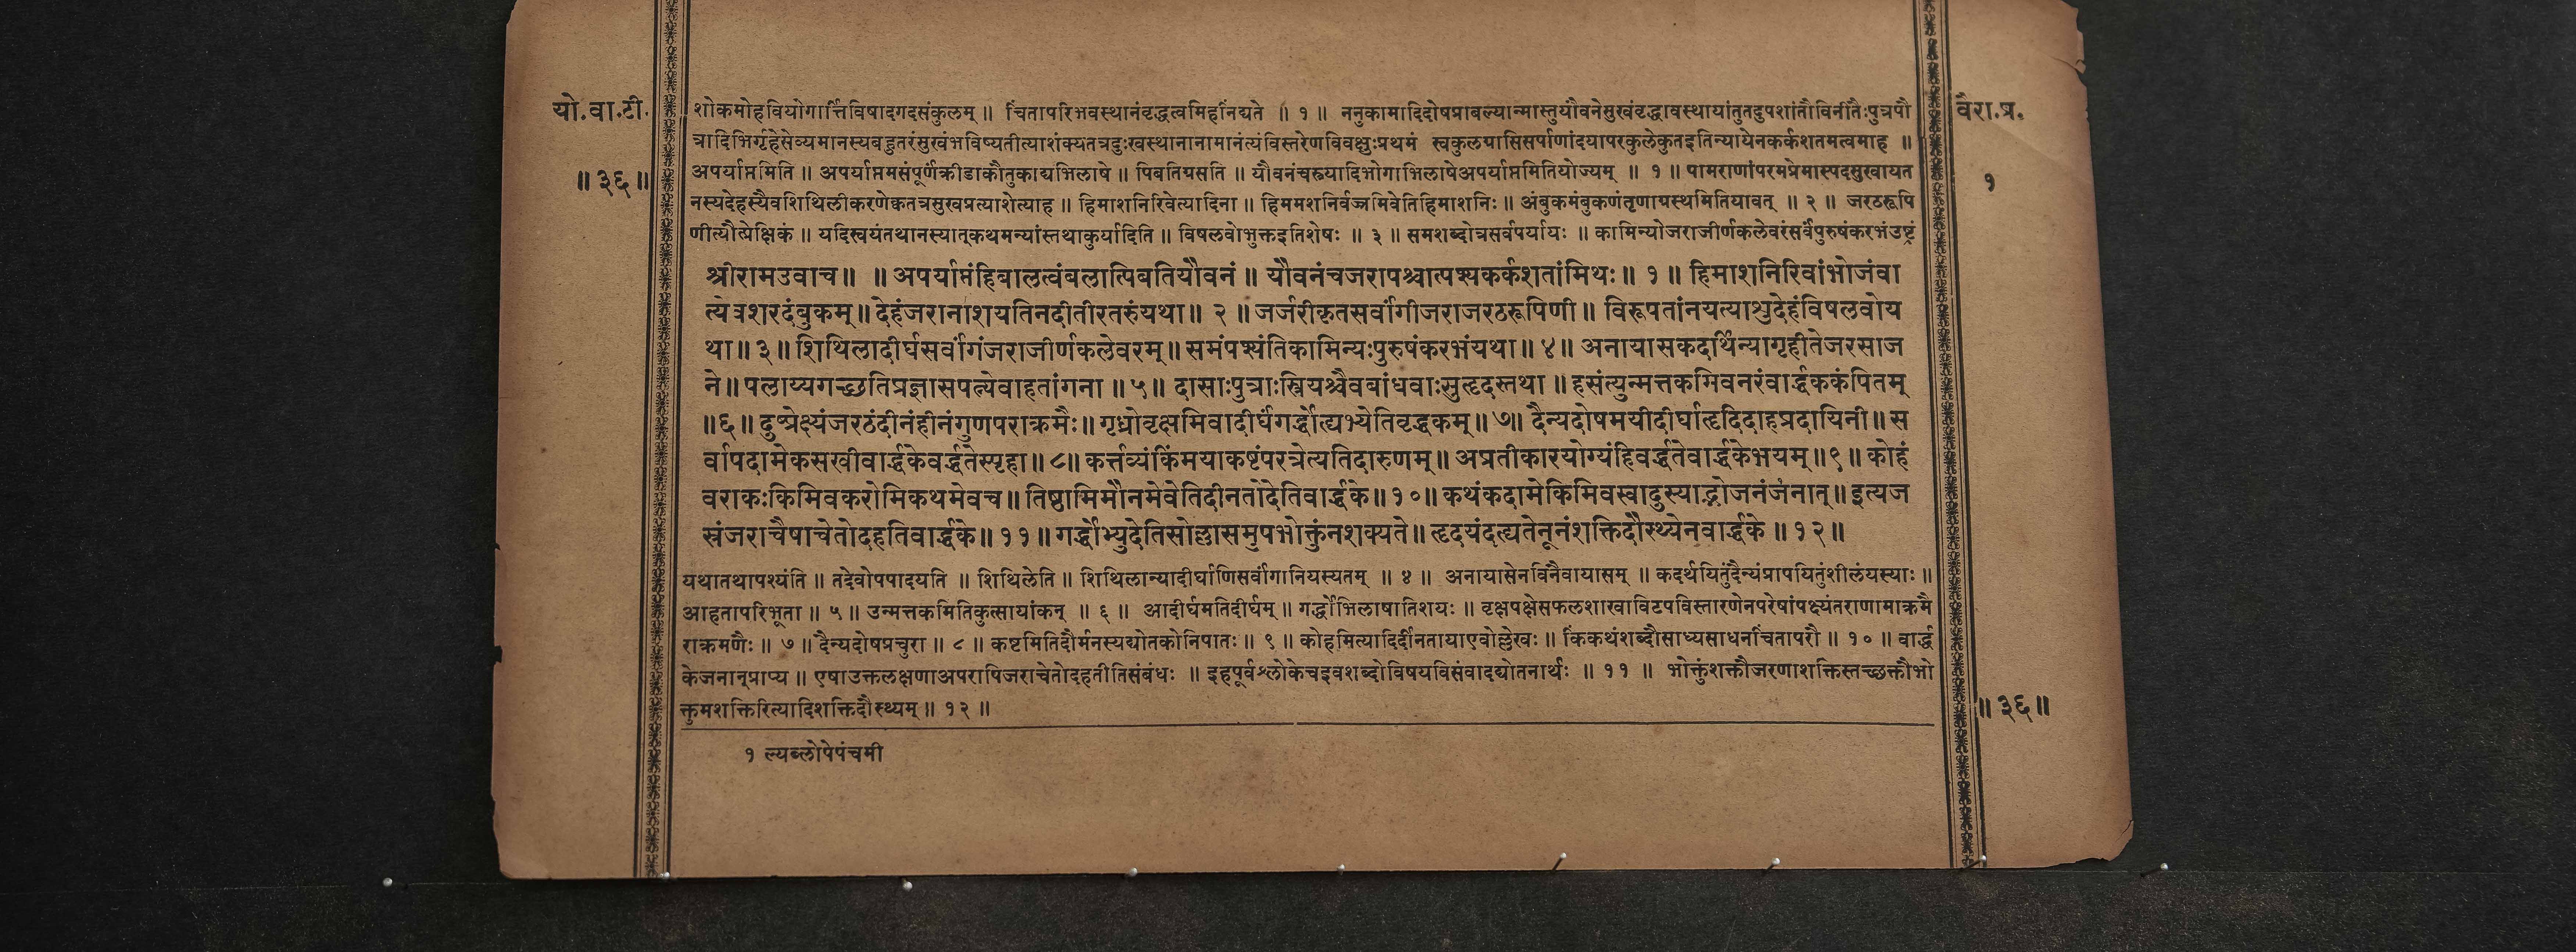 यो.वा.टी.
॥ ३६ ॥
शोकमोहवियोगार्त्तिविषादगदसंकुलम् ॥ चिंतापरिभवस्थानंवृद्धत्वमिहनिंद्यते ॥ १ ॥ ननुकामादिदोषप्राबल्यान्मास्तुयौवनेसुखंवृद्धावस्थायांतुतदुपशांतौविनीतैःपुत्रपौ
त्रादिभिर्गृहेसेव्यमानस्यबहुतरंसुखंभविष्यतीत्याशंक्यतत्रदुःखस्थानानामानंत्यंविस्तरेणविवक्षुःप्रथमं स्वकुलग्रासिसर्पाणांदयापरकुलेकुतइतिन्यायेनकर्कशतमत्वमाह ॥
अपर्याप्तमिति ॥ अपर्याप्तमसंपूर्णक्रीडाकौतुकाद्यभिलाषे ॥ पिबतिग्रसति ॥ यौवनंचरुयादिभोगाभिलाषेअपर्याप्तमितियोज्यम् ॥ १ ॥ पामराणांपरमप्रेमास्पदसुखायत
नस्यदेहस्यैवशिथिलीकरणेक्वतत्रसुखप्रत्याशेत्याह ॥ हिमाशनिरिवेत्यादिना ॥ हिममशनिर्वज्रमिवेतिहिमाशनिः ॥ अंबुकमंबुकणंतृणाग्रस्थमितियावत् ॥ २ ॥ जरठरूपि
णीत्यौत्प्रेक्षिकं ॥ यदिस्वयंतथानस्यात्कथमन्यांस्तथाकुर्यादिति ॥ विषलवोभुक्तइतिशेषः ॥ ३ ॥ समशब्दोत्रसर्वपर्यायः ॥ कामिन्योजराजीर्णकलेवरंसर्वंपुरुषंकरभंउष्ट्रं
श्रीरामउवाच ॥ ॥ अपर्याप्तंहिबालत्वंबलात्पिबतियौवनं ॥ यौवनंचजरापश्चात्पश्यकर्कशतांमिथः ॥ १ ॥ हिमाशनिरिवांभोजंवा
त्येवशरदंबुकम् ॥ देहंजरानाशयतिनदीतीरतरुंयथा ॥ २ ॥ जर्जरीकृतसर्वांगीजराजरठरूपिणी ॥ विरूपतांनयत्याशुदेहंविषलवोय
था ॥ ३ ॥ शिथिलादीर्घसर्वांगंजराजीर्णकलेवरम् ॥ समंपश्यंतिकामिन्यःपुरुषंकरभंयथा ॥ ४ ॥ अनायासकदर्थिन्यागृहीतेजरसाज
ने ॥ पलाय्यगच्छतिप्रज्ञासपत्न्येवाहतांगना ॥ ५ ॥ दासाःपुत्राःस्त्रियश्चैवबांधवाःसुहृदस्तथा ॥ हसंत्युन्मत्तकमिवनरंवार्द्धककंपितम्
॥ ६ ॥ दुष्प्रेक्ष्यंजरठंदीनंहीनंगुणपराक्रमैः ॥ गृध्रोवृक्षमिवादीर्घंगर्द्धोह्यभ्येतिवृद्धकम् ॥ ७ ॥ दैन्यदोषमयीदीर्घाहृदिदाहप्रदायिनी ॥ स
र्वापदामेकसखीवार्द्धकेवर्द्धतेस्पृहा ॥ ८ ॥ कर्त्तव्यंकिंमयाकष्टंपरत्रेत्यतिदारुणम् ॥ अप्रतीकारयोग्यंहिवर्द्धतेवार्द्धकेभयम् ॥ ९ ॥ कोहं
वराकःकिमिवकरोमिकथमेवच ॥ तिष्ठामिमौनमेवेतिदीनतोदेतिवार्द्धके ॥ १० ॥ कथंकदामेकिमिवस्वादुस्याद्भोजनंजनात् ॥ इत्यज
स्रंजराचैषाचेतोदहतिवार्द्धके ॥ ११ ॥ गर्द्धोभ्युदेतिसोल्लासमुपभोक्तुंनशक्यते ॥ हृदयंदह्यतेनूनंशक्तिदौस्थ्येनवार्द्धके ॥ १२ ॥
यथातथापश्यंति ॥ तदेवोपपादयति ॥ शिथिलेति ॥ शिथिलान्यादीर्घाणिसर्वांगानियस्यतम् ॥ ४ ॥ अनायासेनविनैवायासम् ॥ कदर्थयितुंदैन्यंप्रापयितुंशीलंयस्याः ॥
आहतापरिभूता ॥ ५ ॥ उन्मत्तकमितिकुत्सायांकन् ॥ ६ ॥ आदीर्घमतिदीर्घम् ॥ गर्द्धोभिलाषातिशयः ॥ वृक्षपक्षेसफलशाखाविटपविस्तारणेनपरेषांपक्ष्यंतराणामाक्रमै
राक्रमणैः ॥ ७ ॥ दैन्यदोषप्रचुरा ॥ ८ ॥ कष्टमितिदौर्मनस्यद्योतकोनिपातः ॥ ९ ॥ कोहमित्यादिर्दीनतायाएवोल्लेखः ॥ किंकथंशब्दौसाध्यसाधनचिंतापरौ ॥ १० ॥ वार्द्ध
केजनान्प्राप्य ॥ एषाउक्तलक्षणाअपरापिजराचेतोदहतीतिसंबंधः ॥ इहपूर्वश्लोकेचइवशब्दोविषयविसंवादद्योतनार्थः ॥ ११ ॥ भोक्तुंशक्तौजरणाशक्तिस्तच्छक्तौभो
क्तुमशक्तिरित्यादिशक्तिदौस्थ्यम् ॥ १२ ॥
१ ल्यब्लोपेपंचमी
वैरा.प्र.
१
॥ ३६ ॥